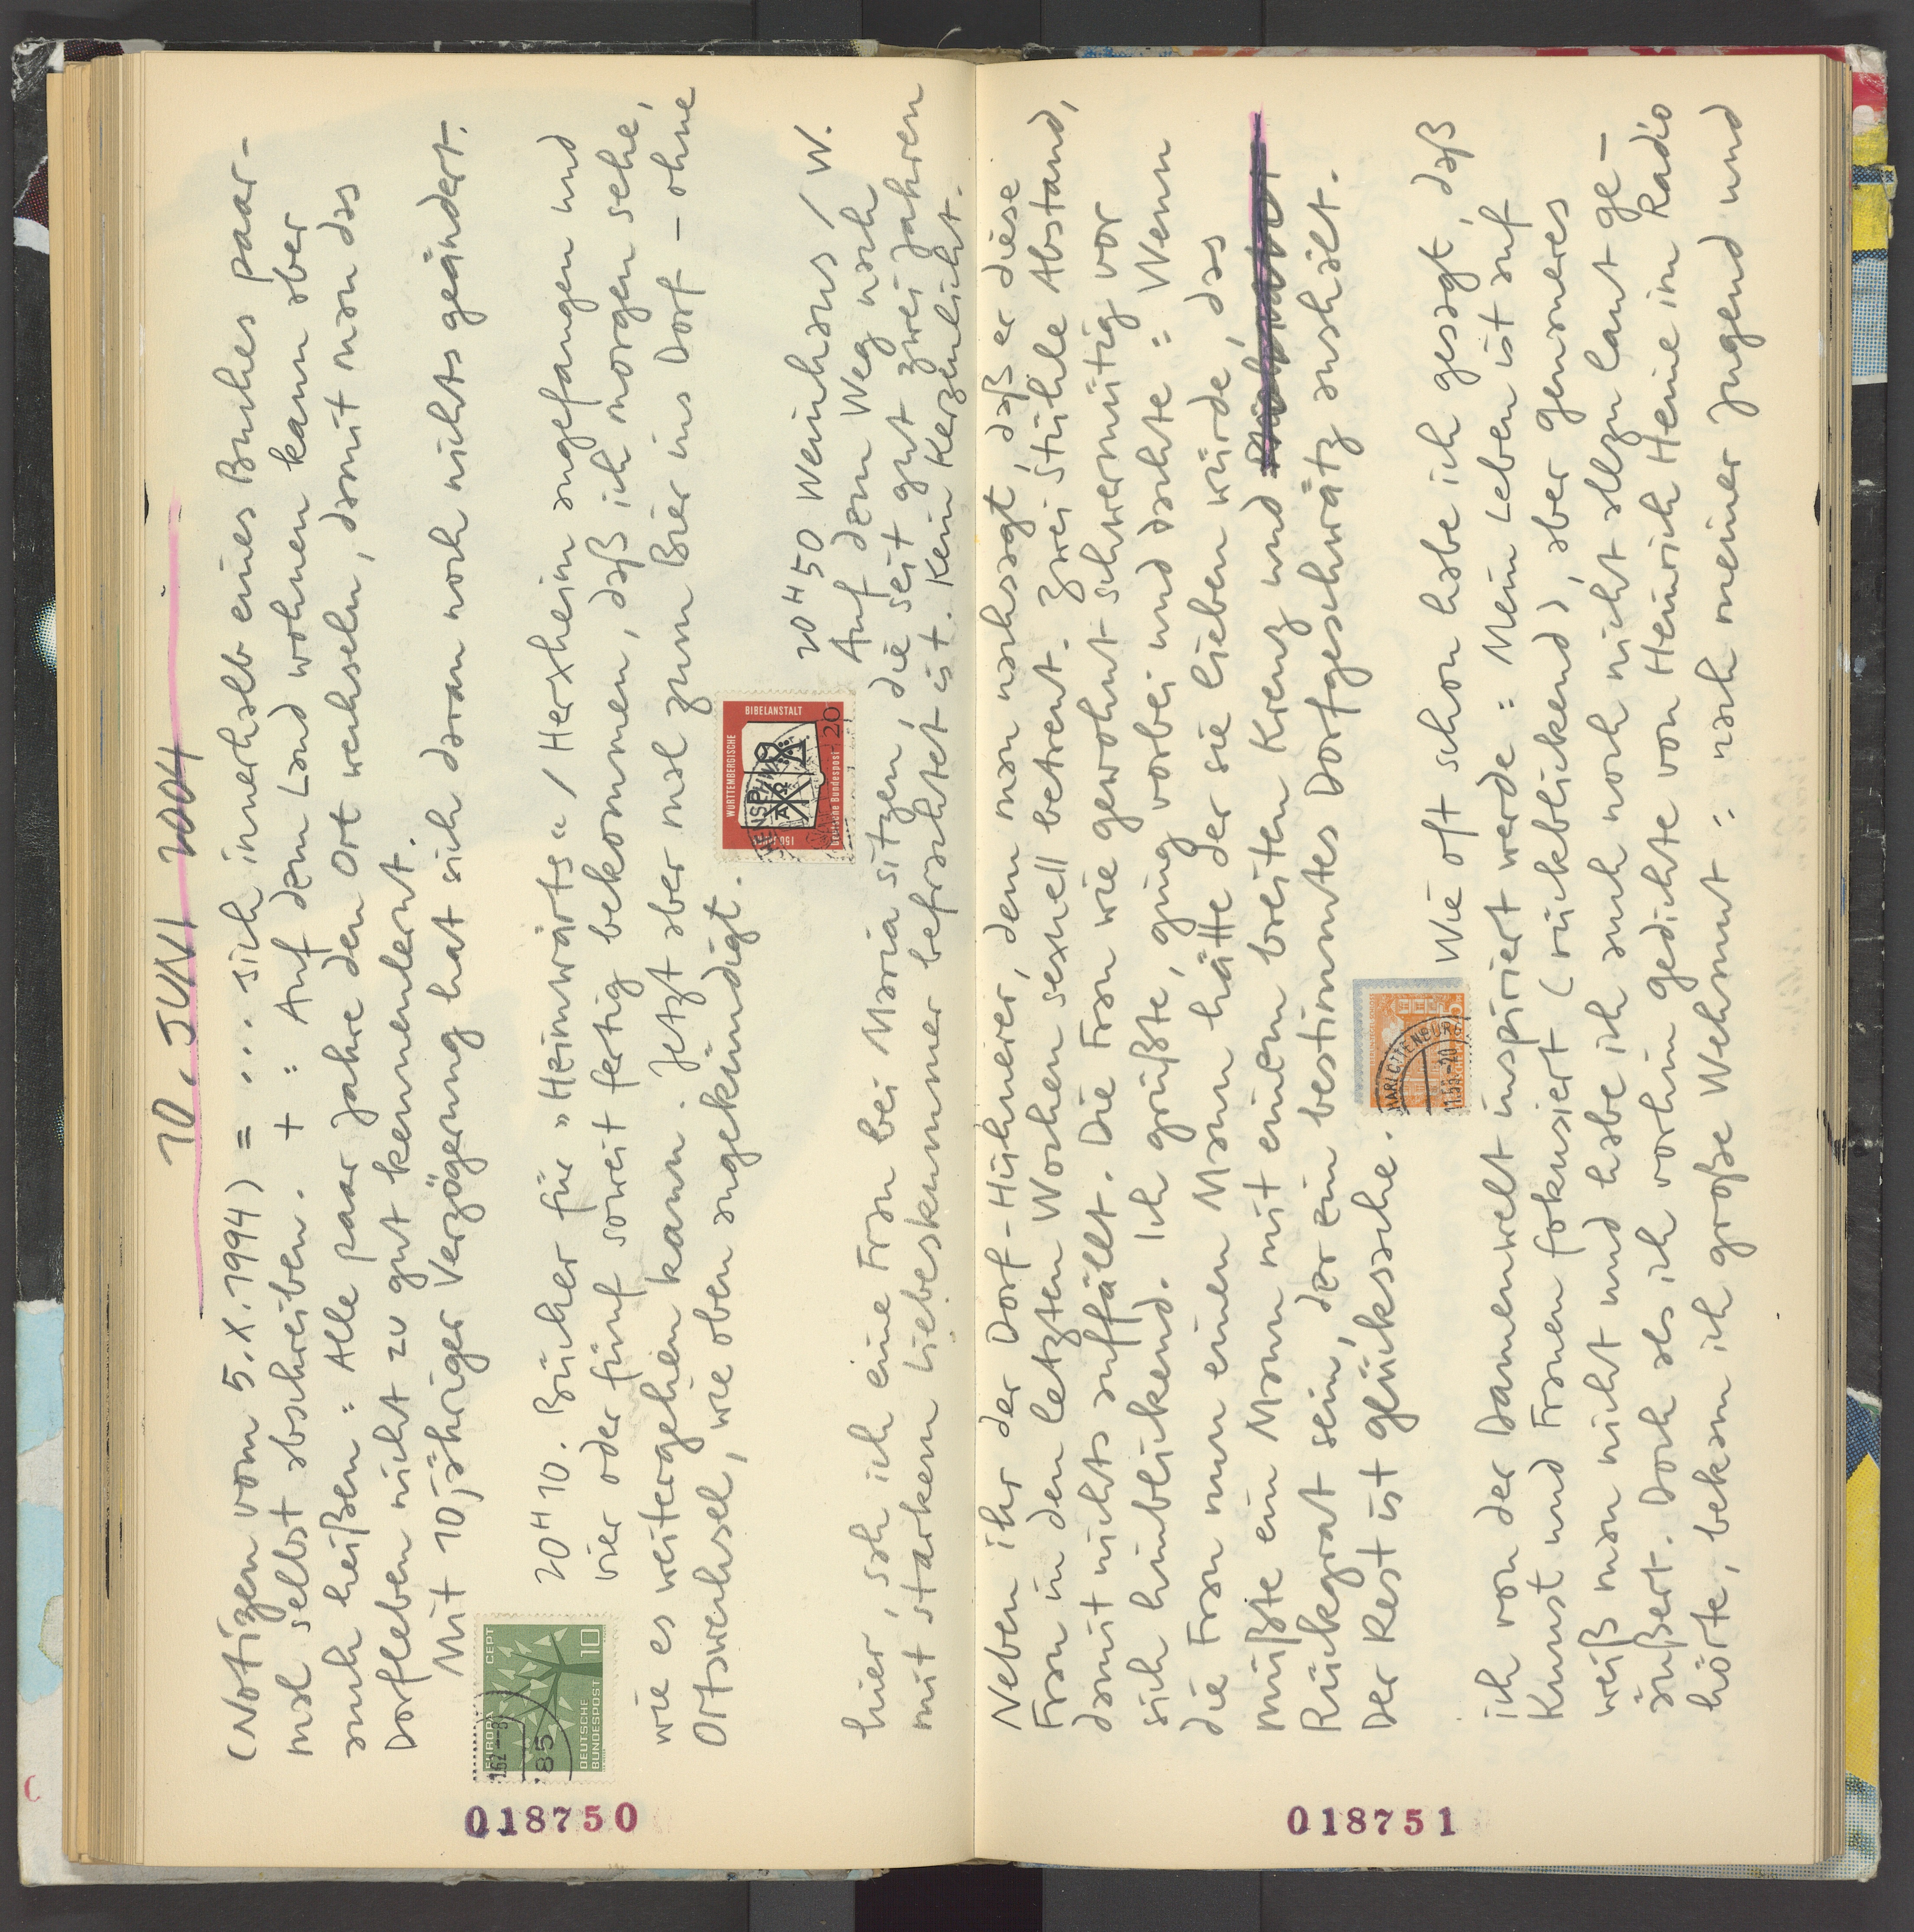 10. JUNI 2004
(Notizen vom 5.X.1994) = ... sich innerhalb eines Buches paar-
mal selbst abschreiben. + : Auf dem Land wohnen kann aber
auch heißen : Alle paar Jahre den Ort wechseln, damit man das
Dorfleben nicht zu gut kennenlernt.
Mit 10jähriger Verzögerung hat sich daran noch nichts geändert.
20 H 10. Bücher für "Heimwärts" / Herxheim angefangen und
vier oder fünf soweit fertig bekommen, daß ich morgen sehe,
wie es weitergehen kann. Jetzt aber mal zum Bier ins Dorf - ohne
Ortswechsel, wie oben angekündigt.
20 H 50 Weinhaus / W.
Auf dem Weg nach
hier, sah ich eine Frau bei Maria sitzen, die seit gut zwei Jahren
mit starkem Liebeskummer befrachtet ist. Kein Kerzenlicht.
Neben ihr der Dorf-Hühnerer, dem man nachsagt, daß er diese
Frau in den letzten Wochen sexuell betreut. Zwei Stühle Abstand,
damit nichts auffällt. Die Frau wie gewohnt schwermütig vor
sich hinblickend. Ich grüßte, ging vorbei und dachte : Wenn
die Frau nun einen Mann hätte der sie lieben würde, das
müßte ein Mann mit einem breiten Kreuz und
Rückgrat sein, der ein bestimmtes Dorfgeschwätz aushält.
Der Rest ist glücksache.
Wie oft schon habe ich gesagt, daß
ich von der Damenwelt inspiriert werde : Mein Leben ist auf
Kunst und Frauen fokusiert (rückblickend), aber genaueres
weiß man nicht und habe ich auch noch nicht allzu laut ge-
äußert. Doch als ich vorhin Gedichte von Heinrich Heine im Radio
hörte, bekam ich große Wehmut : nach meiner Jugend und
EUROPA CEPT
DEUTSCHE
BUNDESPOST 10
WÜRTTEMBERGISCHE
BIBELANSTALT
150 JAHRE
Deutsche Bundespost 20
018750
018751